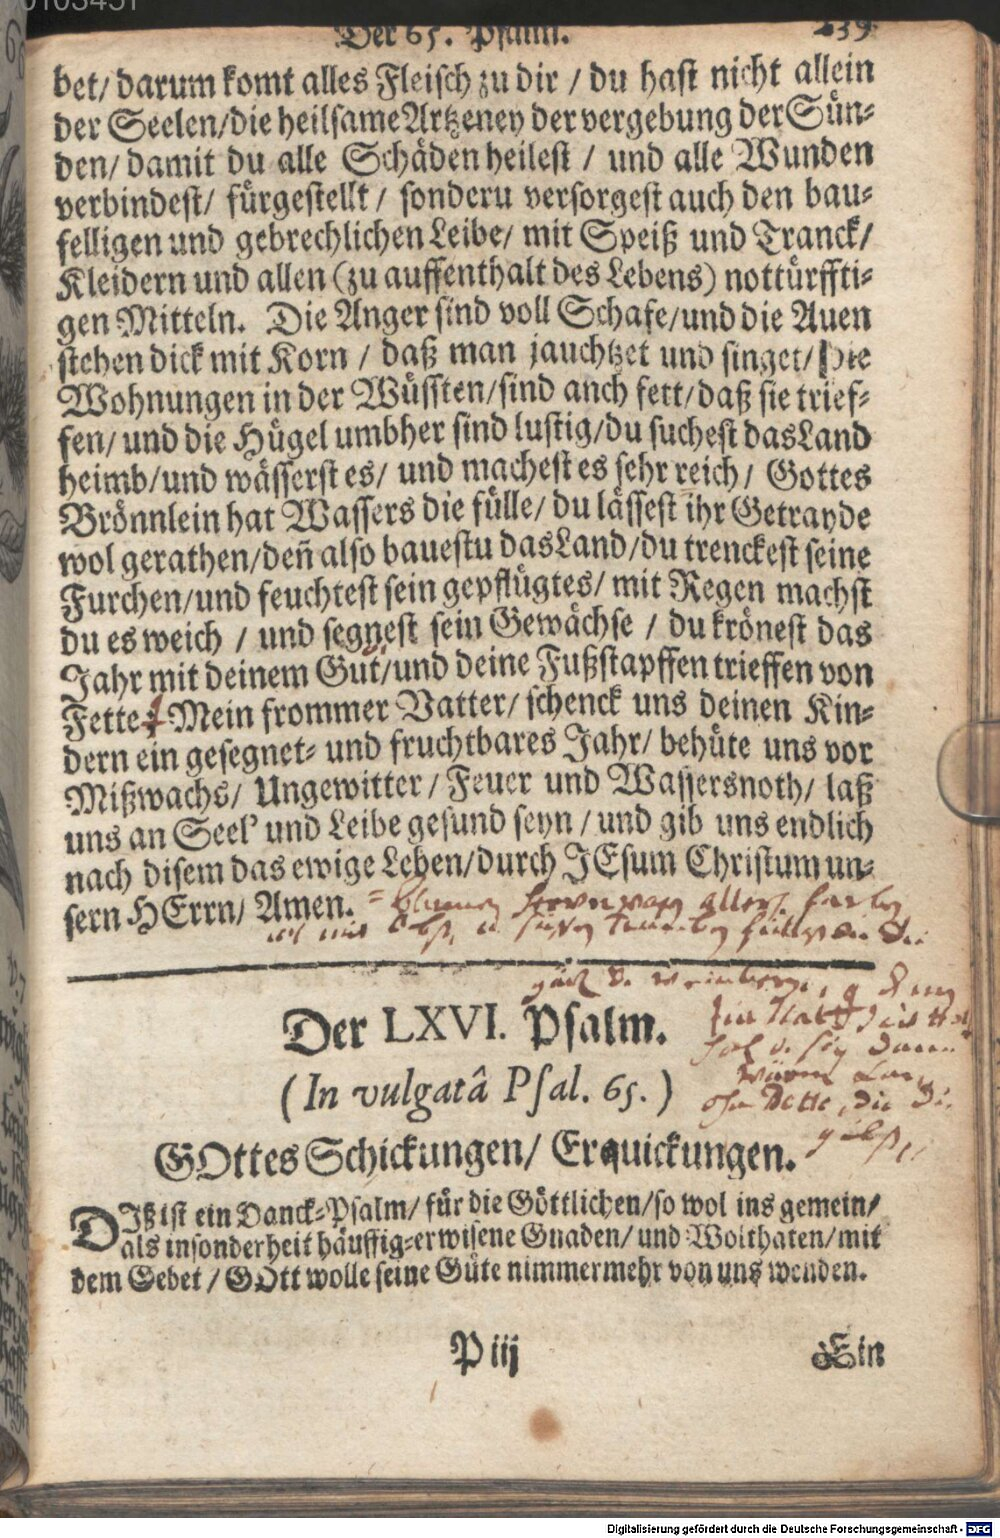 Der 65. Psalm. 239
bet/ darum komt alles Fleisch zu dir / du hast nicht allein
der Seelen/die heilsame Artzeney der vergebung der Sün-
den/ damit du alle Schäden heilest / und alle Wunden
verbindest/ fürgestellt / sonderu versorgest auch den bau-
felligen und gebrechlichen Leibe/ mit Speiß und Tranck/
Kleidern und allen (zu auffenthalt des Lebens) nottürffti-
gen Mitteln. Die Anger sind voll Schafe/und die Auen
stehen dick mit Korn / daß man jauchtzet und singet/ Die
Wohnungen in der Wüssten/sind anch fett/daß sie trief-
fen/ und die Hügel umbher sind lustig/du suchest das Land
heimb/und wässerst es/ und machest es sehr reich / Gottes
Brönnlein hat Wassers die fülle/ du lässest ihr Getrayde
wol gerathen/deñ also bauestu das Land/du trenckest seine
Furchen/und feuchtest sein gepflügtes/ mit Regen machst
du es weich / und segnest sein Gewächse / du krönest das
Jahr mit deinem Gut/und deine Fußstapffen trieffen von
Fette Mein frommer Vatter/ schenck uns deinen Kin-
dern ein gesegnet- und fruchtbares Jahr/ behüte uns vor
Mißwachs/ Ungewitter / Feuer und Wassersnoth/ laß
uns an Seel' und Leibe gesund seyn / und gib uns endlich
nach disem das ewige Leben/durch JEsum Christum un-
sern HErrn/ Amen.
Der LXVI. Psalm.
(In vulgatâ Psal. 65.)
GOttes Schickungen/ Erquickungen.
DIß ist ein Danck-Psalm/ für die Göttlichen/so wol ins gemein/
als insonderheit häuffig-erwisene Gnaden/ und Wolthaten/mit
dem Gebet / GOtt wolle seine Güte nimmermehr von uns wenden.
P iij Ein
Digitalisierung gefördert durch die Deutsche Forschungsgemeinschaft - DFG